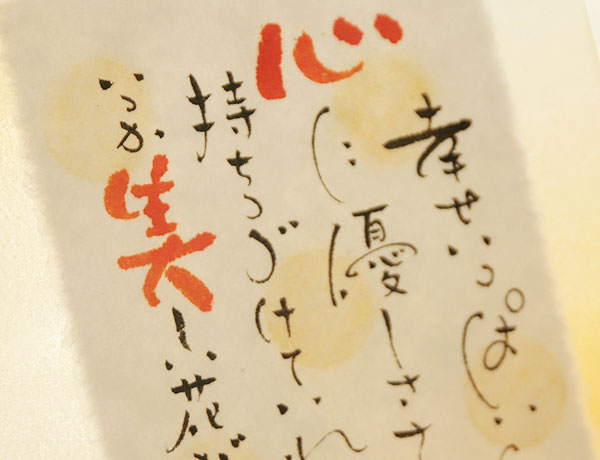 幸せいっぱい
心に優しささ
持ちつづけていれ
いつか美しい花が